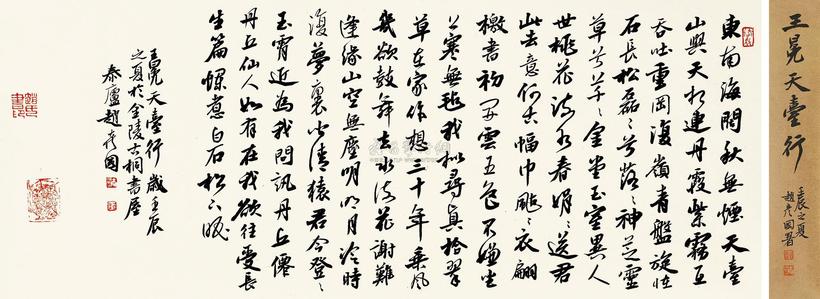 王冕天臺行
壬辰之夏
趙彥國署
東南海闊秋無煙天臺
山與天相連丹霞紫霧互
吞吐重岡復嶺青盤旋怪
石長松磊〻兮落〻神芝靈
草兮芊〻金堂玉室異人
世桃花流水春娟〻送君
此去意何古幅巾飄〻衣翩
檄書初開雲五色不嫌坐
上寒無氈我拟尋真拾翠
草在家作想三十年乘風
幾欲鼓舞去水流花謝難
逢緣山空無塵明月冷時
復夢裏聞清猿君今登〻
玉霄近為我問訊丹丘僊
丹丘仙人如有在我欲往受長
生篇煮白石松下眠
王冕天臺行歲壬辰
之夏於金陵古桐書屋
泰廬趙彥國